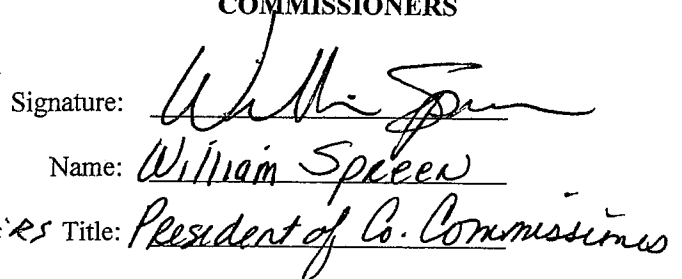 COMMISSIONERS
Signature: William Spreen
Name: William Spreen
RS Title: President of Co. Commissiones